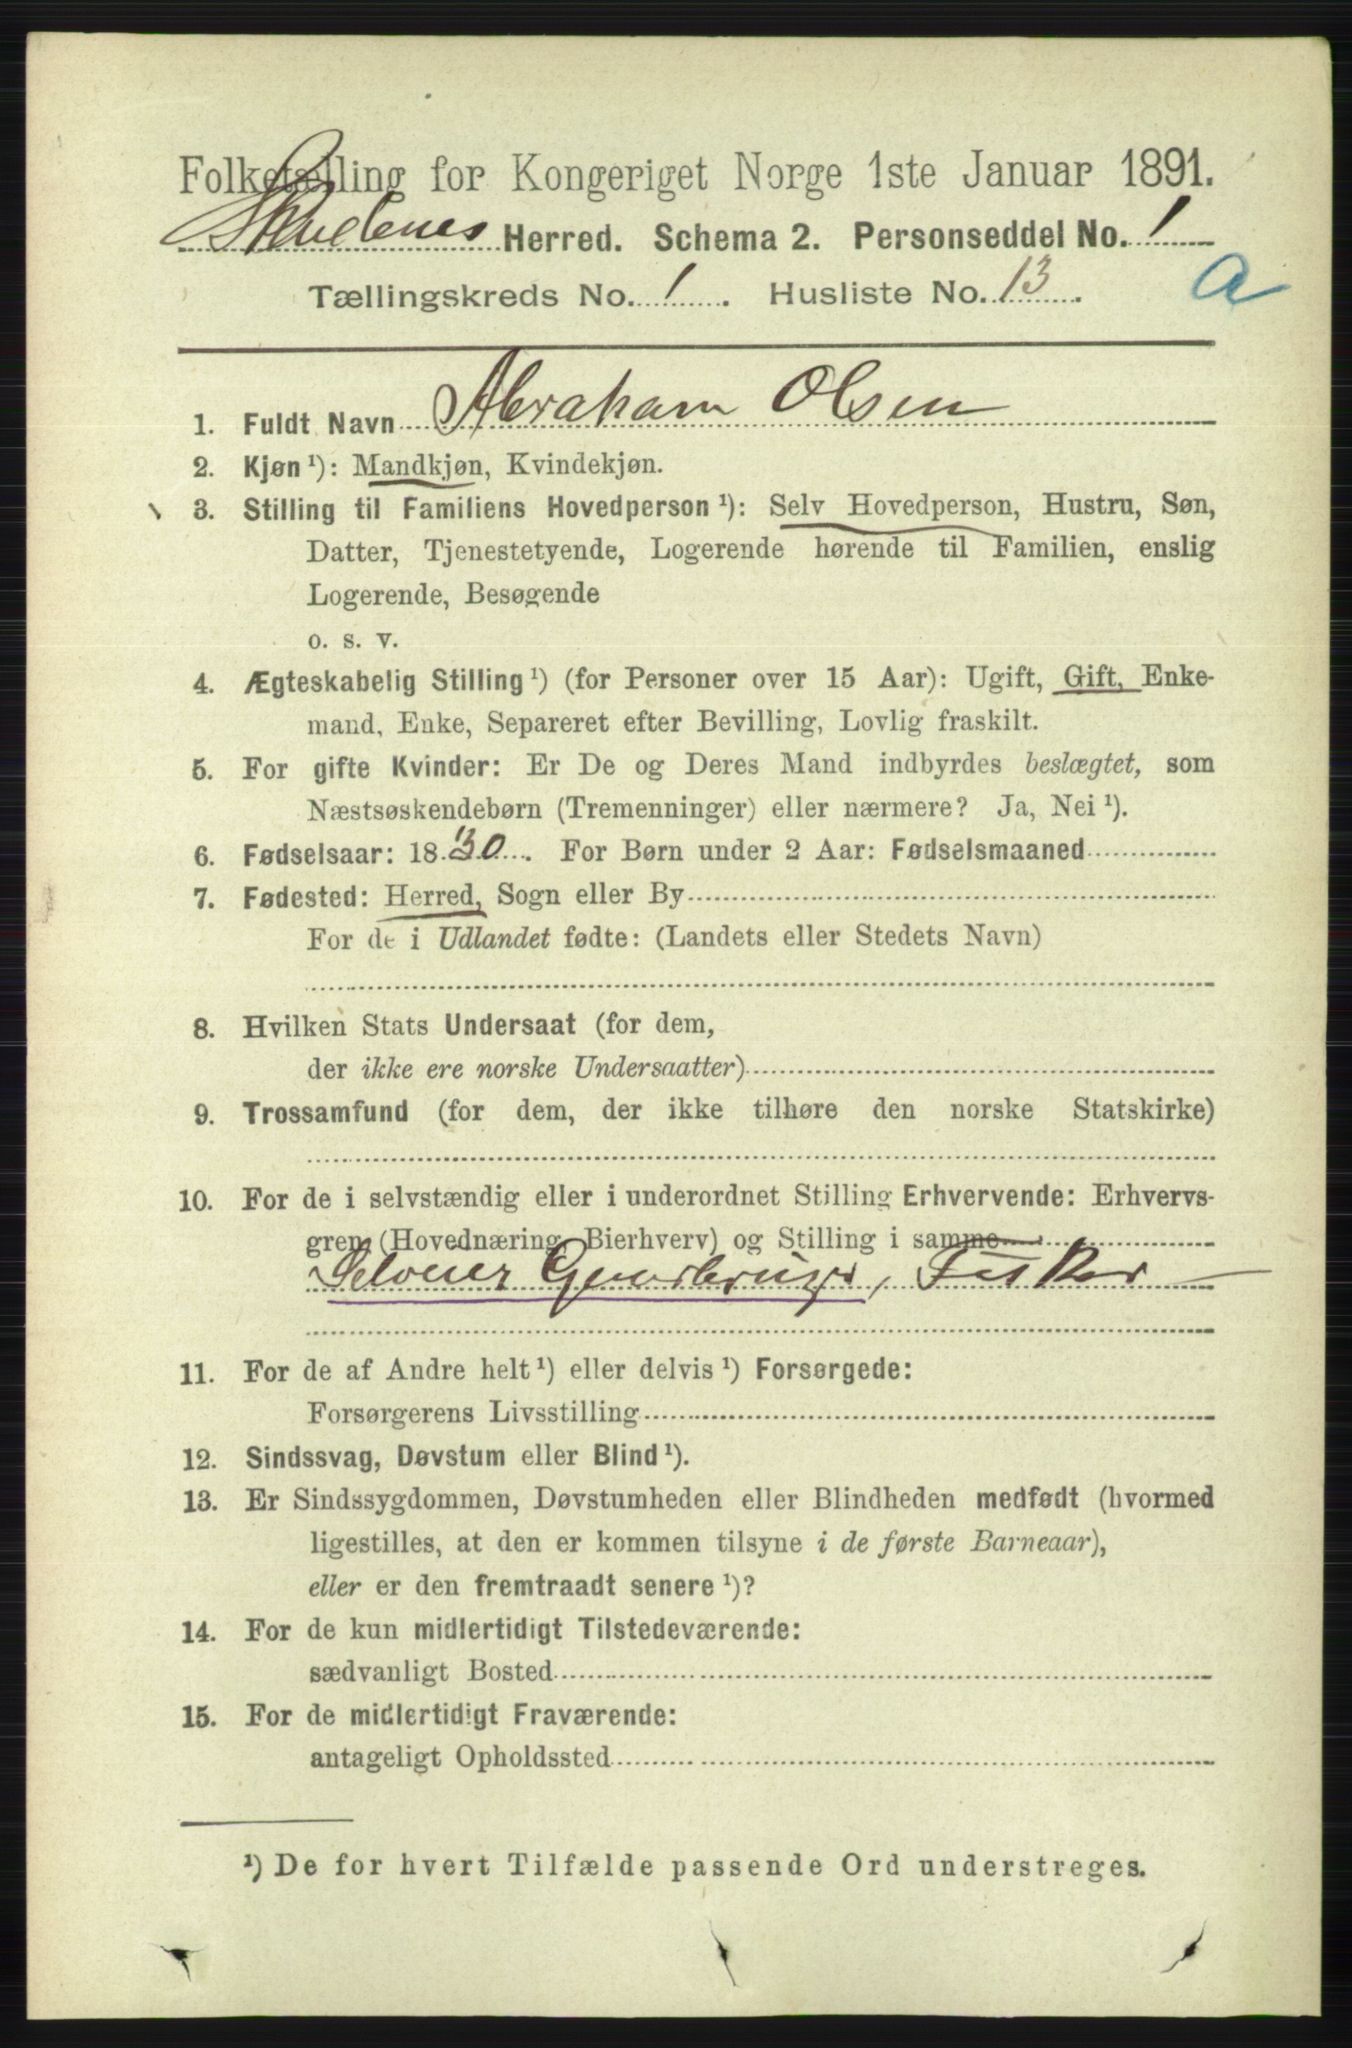 Folketælling for Kongeriget Norge 1ste Januar 1891.
Skudenes Herred. Schema 2. Personseddel No. 1
Tællingskreds No. 1. Husliste No. 13.
a
1. Fuldt Navn Abraham Olsen
2. Kjøn ¹): Mandkjøn, Kvindekjøn.
3. Stilling til Familiens Hovedperson ¹): Selv Hovedperson, Hustru, Søn,
Datter, Tjenestetyende, Logerende hørende til Familien, enslig
Logerende, Besøgende
o. s. v.
4. Ægteskabelig Stilling ¹) (for Personer over 15 Aar): Ugift, Gift, Enke-
mand, Enke, Separeret efter Bevilling, Lovlig fraskilt.
5. For gifte Kvinder: Er De og Deres Mand indbyrdes beslægtet, som
Næstsøskendebørn (Tremenninger) eller nærmere? Ja, Nei ¹).
6. Fødselsaar: 1830. For Børn under 2 Aar: Fødselsmaaned
7. Fødested: Herred, Sogn eller By
For de i Udlandet fødte: (Landets eller Stedets Navn)
8. Hvilken Stats Undersaat (for dem,
der ikke ere norske Undersaatter)
9. Trossamfund (for dem, der ikke tilhøre den norske Statskirke)
10. For de i selvstændig eller i underordnet Stilling Erhvervende: Erhvervs-
gren (Hovednæring, Bierhverv) og Stilling i samme
Selveier Gaardbruger, Fisker
11. For de af Andre helt ¹) eller delvis ¹) Forsørgede:
Forsørgerens Livsstilling
12. Sindssvag, Døvstum eller Blind ¹).
13. Er Sindssygdommen, Døvstumheden eller Blindheden medfødt (hvormed
ligestilles, at den er kommen tilsyne i de første Barneaar),
eller er den fremtraadt senere ¹)?
14. For de kun midlertidigt Tilstedeværende:
sædvanligt Bosted
15. For de midlertidigt Fraværende:
antageligt Opholdssted
¹) De for hvert Tilfælde passende Ord understreges.